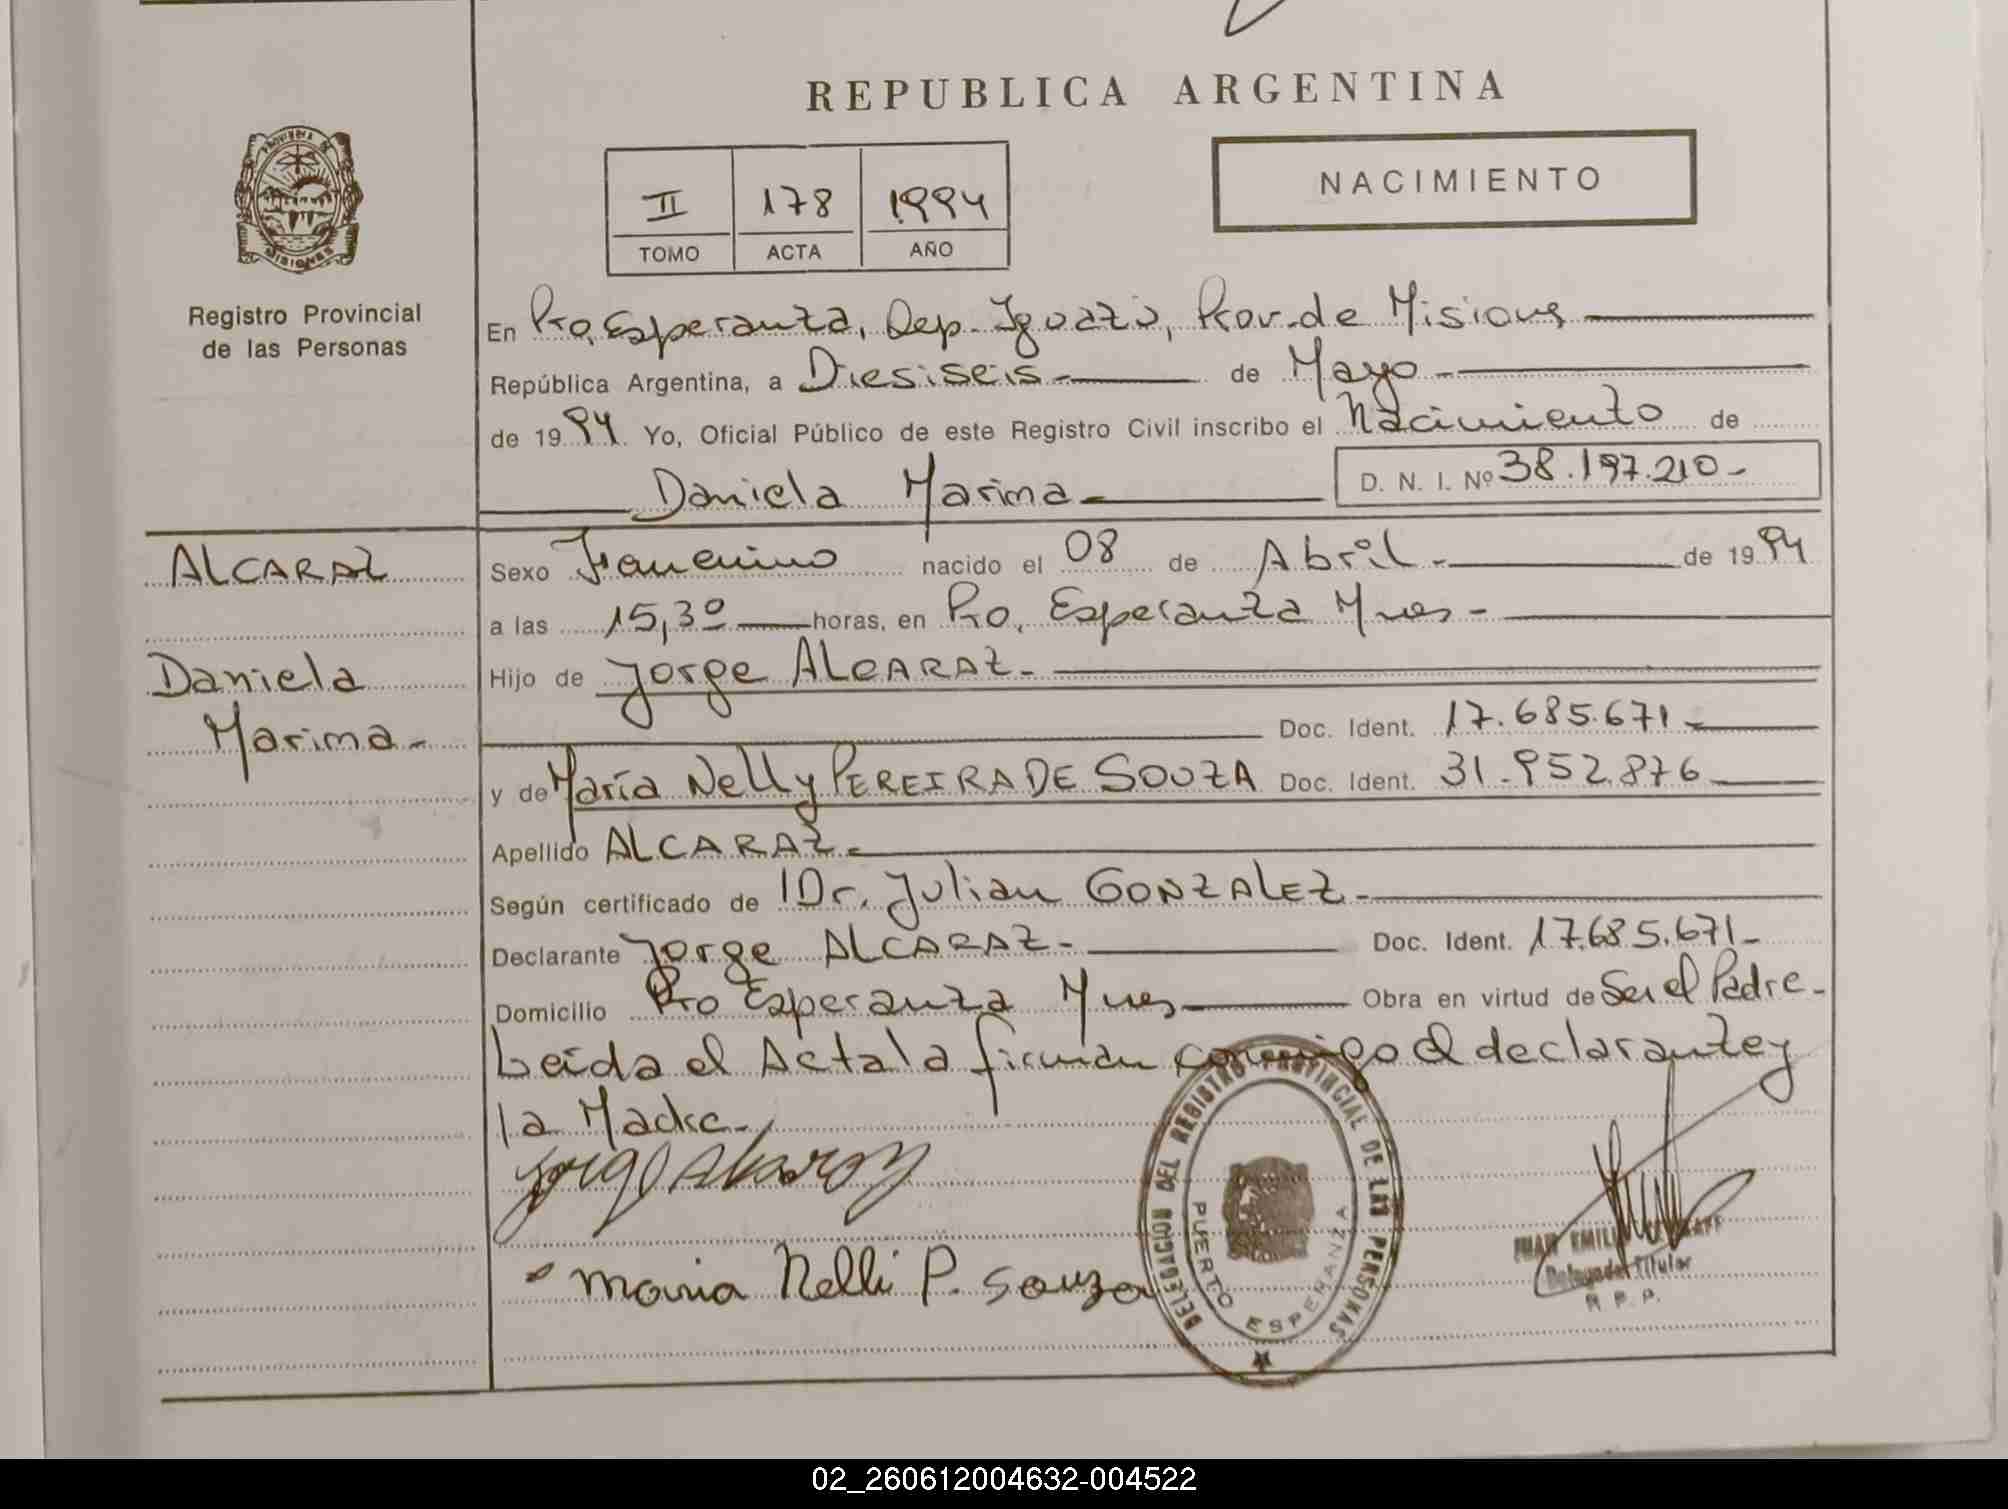 REPUBLICA ARGENTINA
PROVINCIA DE
MISIONES
Registro Provincial
de las Personas
II 178 1994
TOMO ACTA AÑO
NACIMIENTO
En Pto. Esperanza, Dep. Iguazú, Prov. de Misiones
República Argentina, a Diesiseis.- de Mayo.-
de 1994 Yo, Oficial Público de este Registro Civil inscribo el Nacimiento de
Daniela Marima.- D. N. I. Nº 38.197.210-
ALCARAZ
Daniela
Marima.-
Sexo Femenino nacido el 08 de Abril.- de 1994
a las 15,30 horas, en Pto. Esperanza Mnes-
Hijo de Jorge ALCARAZ.-
Doc. Ident. 17.685.671-
y de María Nelly PEREIRA DE SOUZA Doc. Ident. 31.952.876
Apellido ALCARAZ.-
Según certificado de Dr. Julian GONZALEZ.-
Declarante Jorge ALCARAZ.- Doc. Ident. 17.685.671-
Domicilio Pto Esperanza Mnes Obra en virtud de Ser el Padre-
Leída el Acta la firman conmigo el declarante y
la Madre.-
Jorge Alcaraz
Maria Nelli P. Souza
DELEGACION DEL REGISTRO PROVINCIAL DE LAS PERSONAS
PUERTO ESPERANZA
JUAN EMILIO
Delegado Titular
R. P. P.
02_260612004632-004522